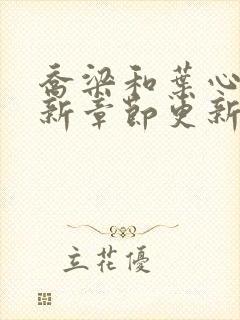 乔梁和葉心
新章節更新
立花優